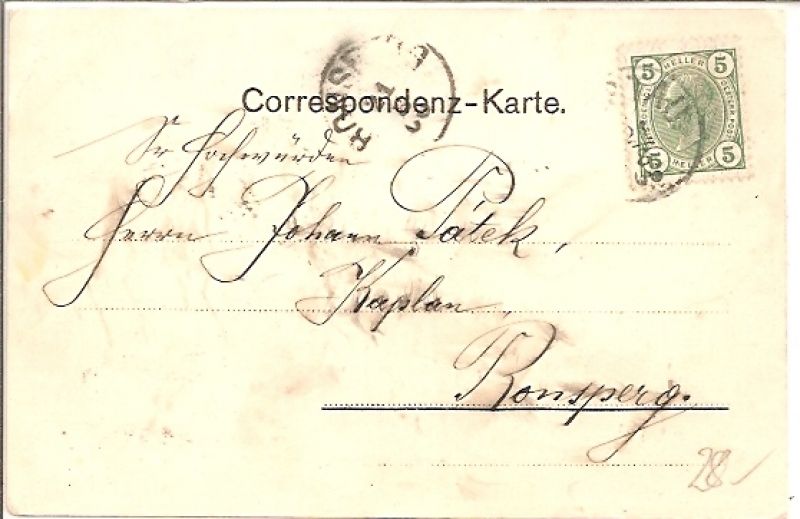 Correspondenz-Karte.
5 HELLER 5
5 HELLER 5
Sr Hochwürden
Herrn Johann Pátek,
Kaplan,
Ronsperg.
28